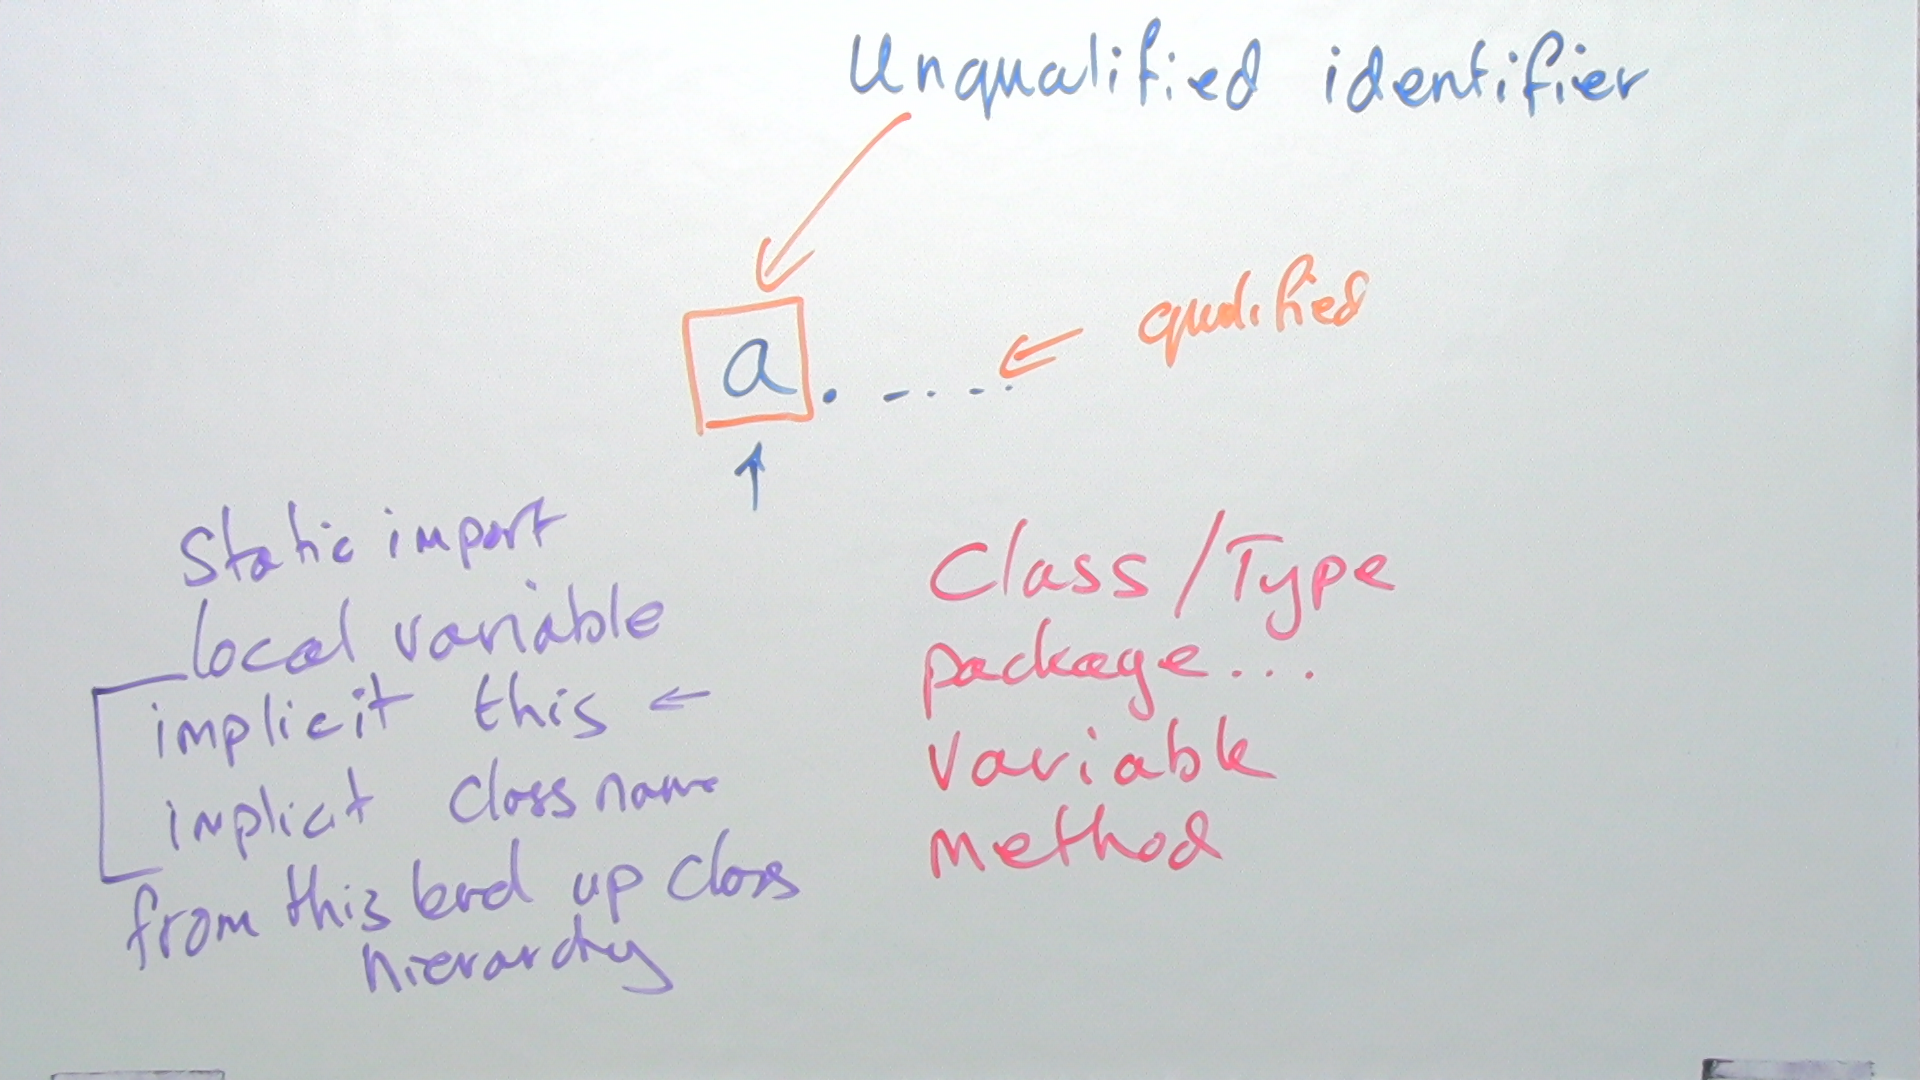 Unqualified identifier
qualified
a. - . - .
Static import
local variable
implicit this ←
implicit class name
from this level up class
hierarchy
Class/Type
package...
Variable
Method